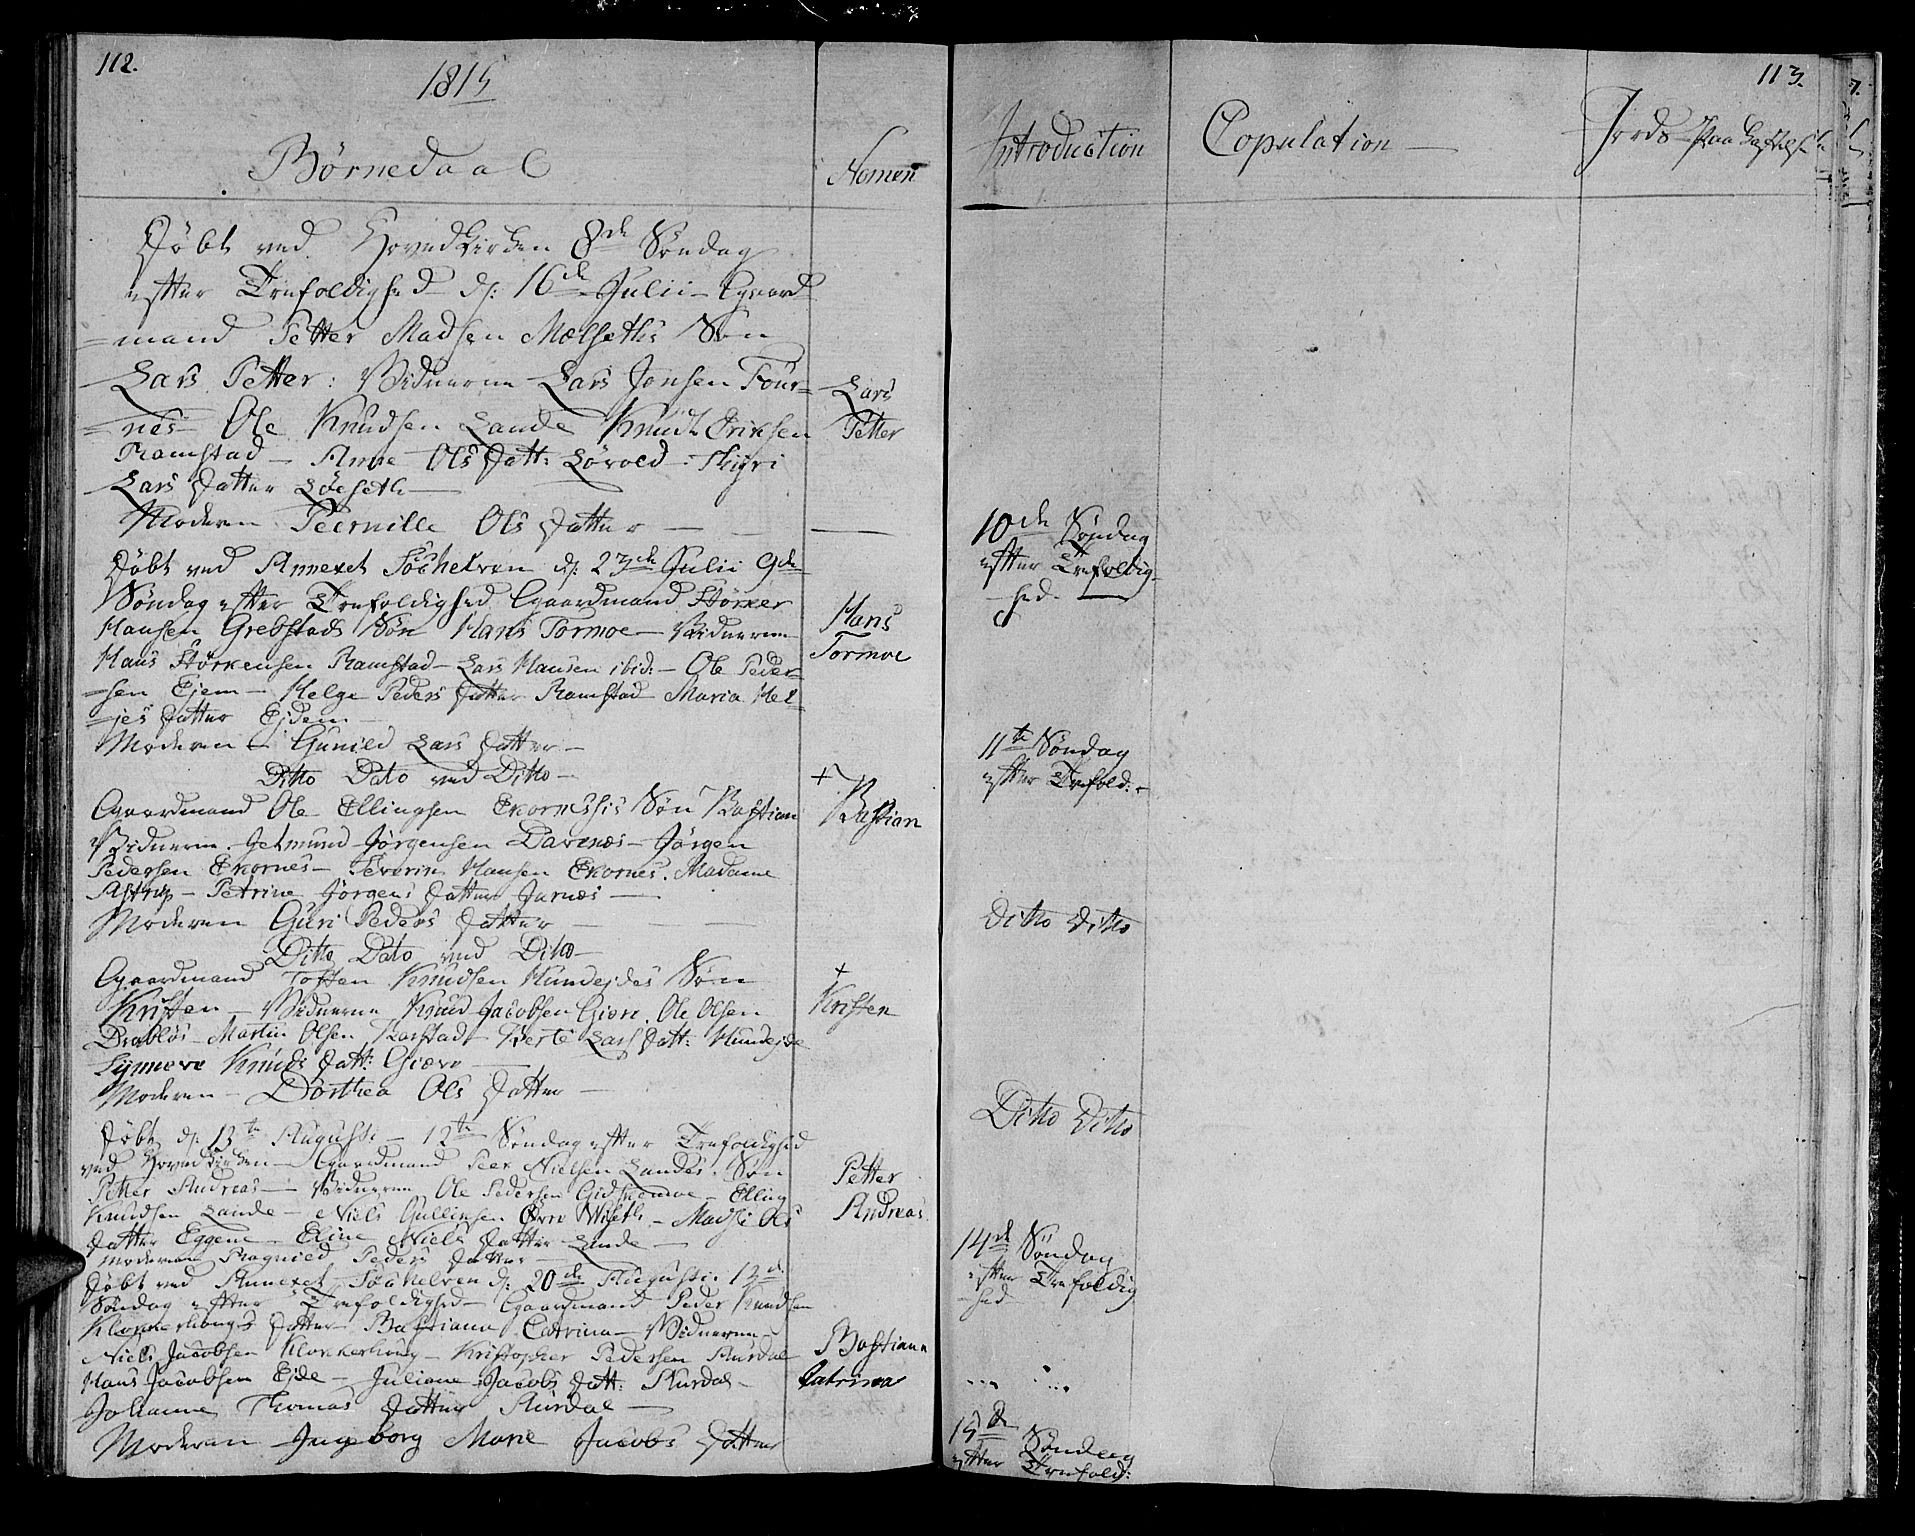 112.
1815
Børnedaab
Nomen
Døbt ved Hovedkirken 8de Søndag
efter Trefoldighed d: 16de Julii - Gaard=
=mand Petter Madsen Mælseths Søn
Lars Petter: Vidnerne Lars Jonsen Four=
=nes - Ole Knudsen Lande Knudt Eriksen
Ramstad - Anne Ols Datt: Løvold - Siyri
Lars Datter Løeseth
Moderen Peernille Ols Datter
Lars
Petter
Døbt ved Annexet Søchelven d: 23de Julii 9de
Søndag efter Trefoldighed Gaardmand Størker
Hansen Grebstads Søn Hans Tormoe - Vidnerne
Hans Størkensen Ramstad - Lars Hansen ibid: - Ole Peder=
=sen Ejem - Helge Peders Datter Ramstad Maria Hel=
=jes Datter Ejdem
Moderen - Gunild Lars Datter -
Hans
Tormoe
Ditto Dato ved Ditto -
Gaardmand Ole Ellingsen Ekornessis Søn Bastian
Vidnerne. Jetmund Jørgensen Davenes - Jørgen
Pedersen Ekornes - Severin Hansen Ekornes. Madame
Astrup - Petrine Jørgens Datter Jarnæs
Moderen Guri Peders Datter
+
Bastian
Ditto Dato ved Ditto
Gaardmand Toften Knudsen Hundejdes Søn
Kristen - Vidnerne Knud Jacobsen Giære. Ole Olsen
Drabløs - Martin Olsen Barstad - Berte Lars Datt: Hundejde
Synneve Knuds Datt: Giære
Moderen - Dorthea Ols Datter
+
Kristen
Døbt d: 13te Augusti - 12te Søndag efter Trefoldighed
ved Hovedkirken - Gaardmand Peer Nielsen Landes Søn
Petter Andreas - Vidnerne Ole Pedersen Gidskemoe - Elling
Knudsen Lande - Niels Gullisen Øvre Wiseth - Madsi Ols
Datter Eggene - Eline Niels Datter Lande
Moderen Ragnild Peders Datter
Petter
Andreas
Døbt ved Annexet Søchelven d: 20de Augusti. 13de
Søndag efter Trefoldighed - Gaardmand Peder Knudsen
Klokkerhougs Datter Bastiana Catrina - Vidnerne
Niels Jacobsen Klokkerhoug - Kristopher Pedersen Aurdal
Hans Jacobsen Ejde - Juliane Jacobs Datt: Aurdal -
Johanne Thomas Datter Aurdal
Moderen Ingeborg Marie Jacobs Datter
Bastiana
Catrina
113.
Introduction
Copulation
Jords Paa Kastelse
10de Søndag
efter Trefoldig-
hed.
11te Søndag
efter Trefold:
Ditto Ditto
Ditto Ditto
14de Søndag
efter Trefoldig
hed
... ...
15de Søndag
efter Trefold: